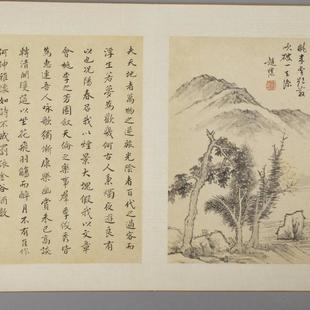 夫天地者萬物之逆旅光陰者百代之過客而
浮生若夢為歡幾何古人秉燭夜遊良有
以也況陽春召我以煙景大塊假我以文章
會桃李之芳園敘天倫之樂事羣季俊秀皆
為惠連吾人詠歌獨慚康樂幽賞未已高談
轉清開瓊筵以坐花飛羽觴而醉月不有佳作
何伸雅懷如詩不成罰依金谷酒數